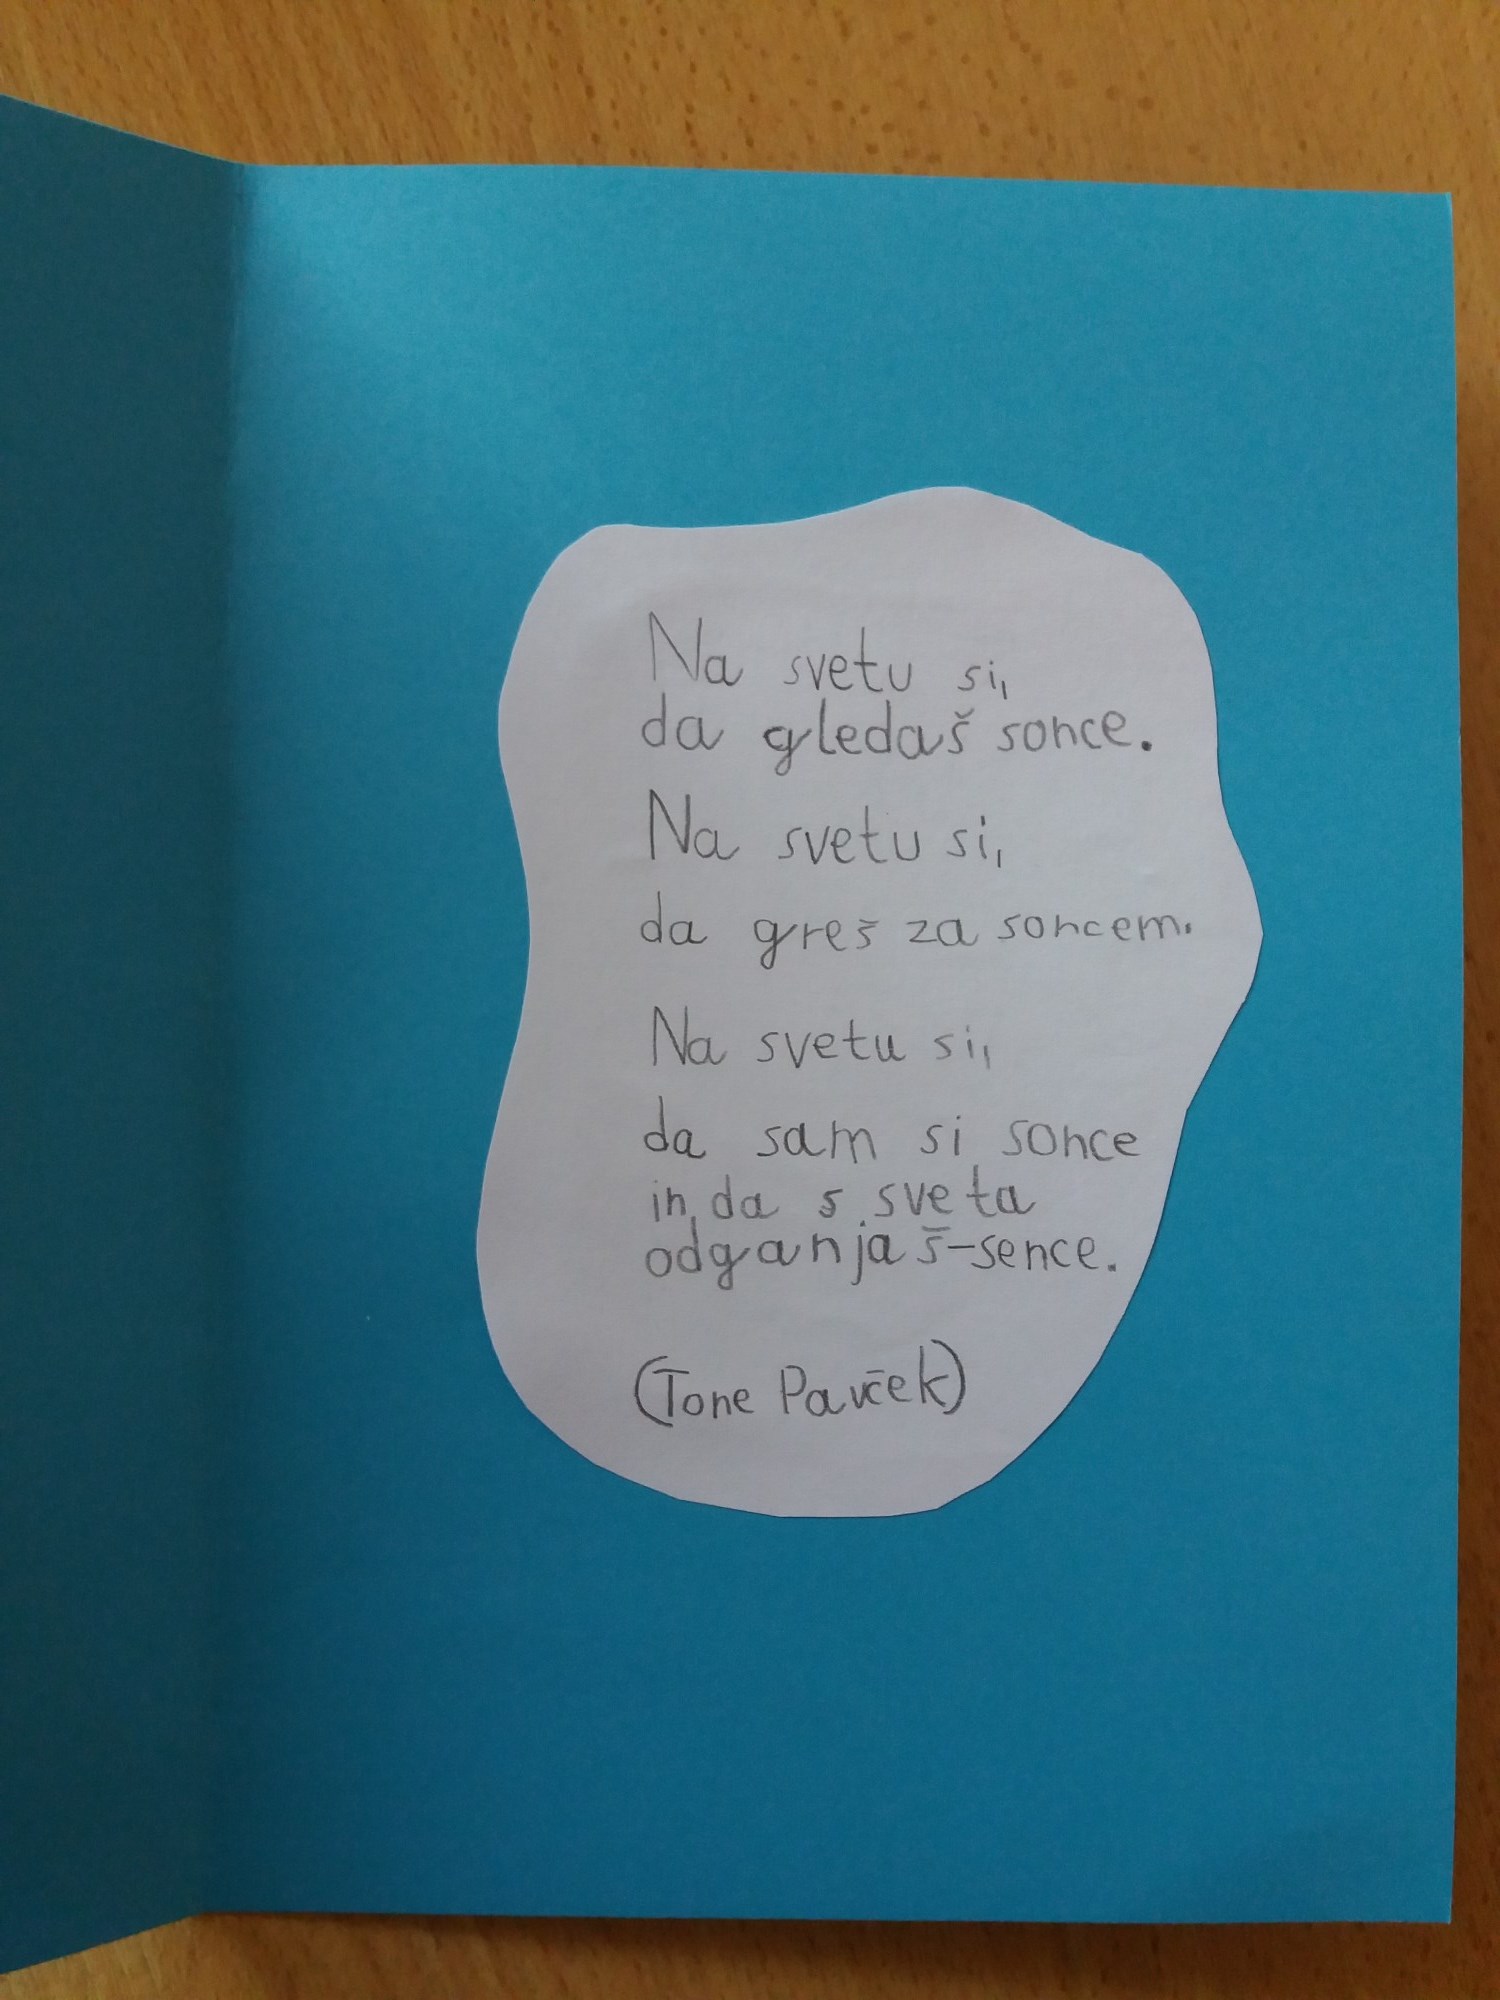 Na svetu si,
da gledaš sonce.
Na svetu si,
da greš za soncem.
Na svetu si,
da sam si sonce
in da s sveta
odganjaš-sence.
(Tone Pavček)